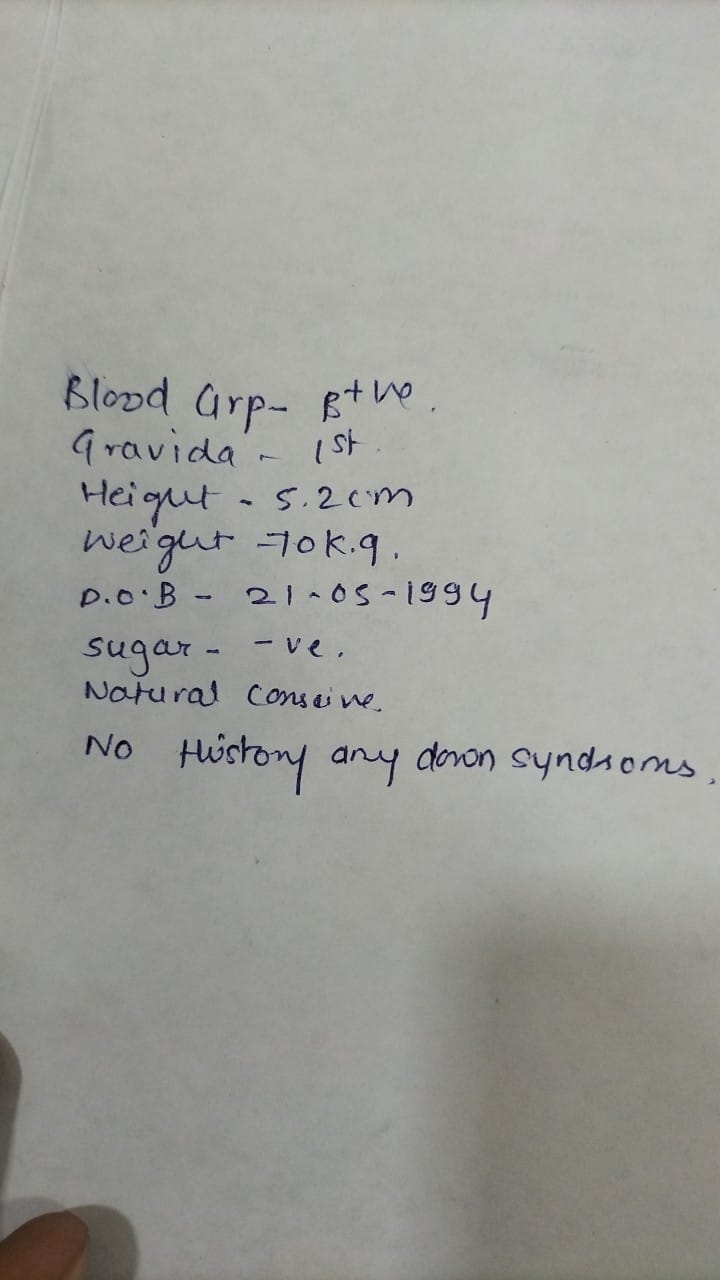 Blood Grp- B+ve.
Gravida - 1st.
Height - 5.2 cm
Weight - 70 K.g.
D.O.B - 21-05-1994
sugar - -ve.
Natural Conseive.
No History any down syndroms.